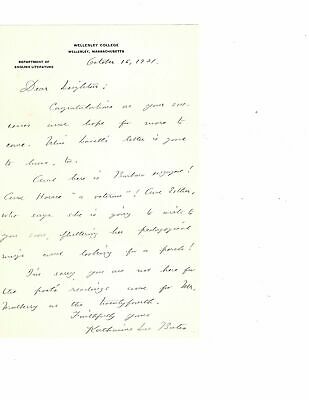 WELLESLEY COLLEGE
WELLESLEY, MASSACHUSETTS
DEPARTMENT OF
ENGLISH LITERATURE
October 16, 1921.
Dear
Congratulations on your suc-
cesses and hope for more to
come. Miss letter is gone
to
And here is Barbara engaged!
And Horace "a veteran"! And Esther,
who says she is going to write to
you soon, fluttering her pedagogical
wings and looking for a perch!
I'm sorry you are not here for
the poets' readings and for Mr.
on the twentyfourth.
Faithfully yours
Katharine Lee Bates